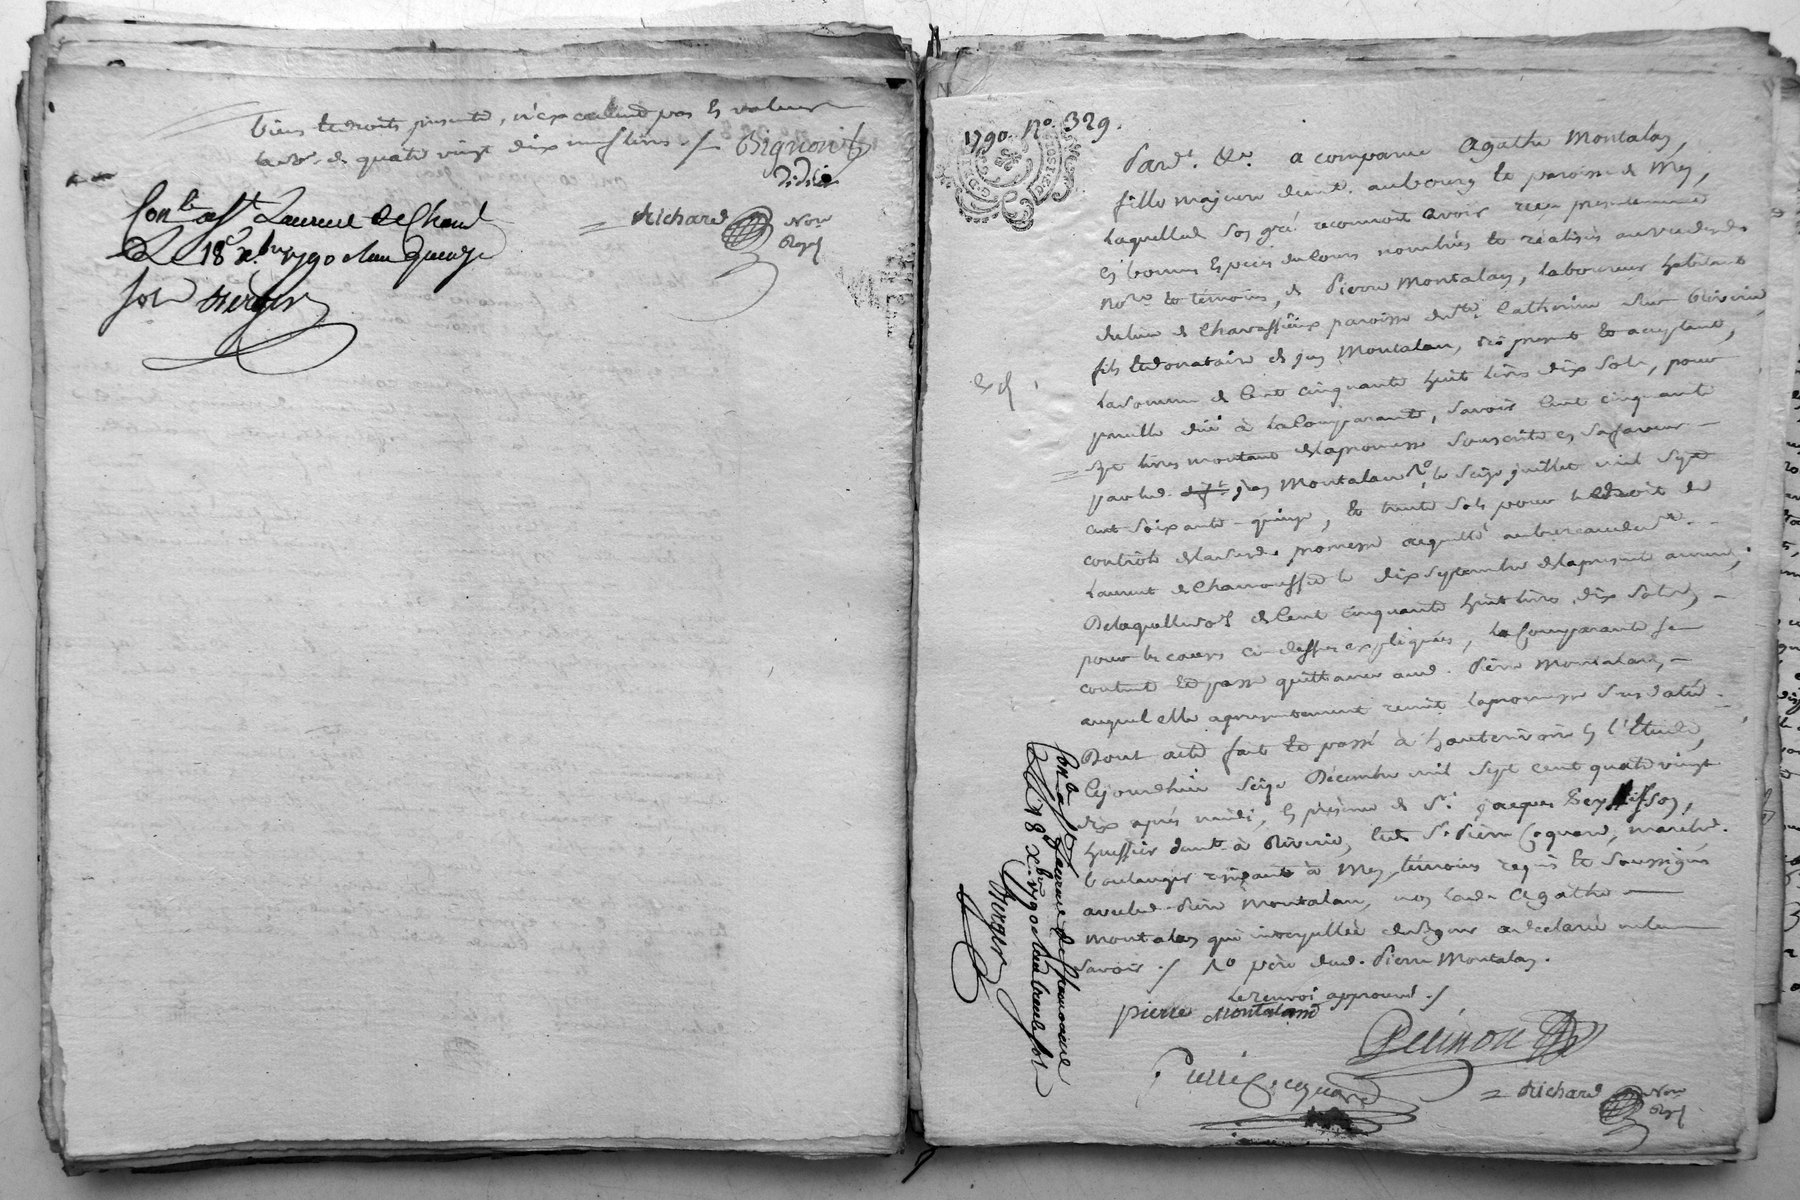 biens & droits presents, n'excedent pas la valeur
de quatre vingt dix neuf livres ./.
Richard Not.
Royl
Con.le à St Laurent de Cham.
le 18 Xbre 1790 Reçu quinze
sols Berger
1790. No. 329.
Pard.t &c. a comparu Agathe Montalan,
fille majeure demt. au bourg & paroisse de Mey,
laquelle de son gré reconnoit avoir reçu presentement
en bonnes especes du cours nombrées & réalisées au vu desd.
No.re & témoins, de Pierre Montalan, laboureur habitant
du lieu de Chavassieux paroisse de Ste. Catherine sur Riverie
fils & donataire de Montalan, ici present & acceptant,
la somme de Cent cinquante huit livres dix sols, pour
pareille due à la Comparante, savoir Cent cinquante
sept livres montant de la promesse souscrite en sa faveur
par led. Montalan le seize juillet mil sept
cent soixante-quinze, & trente sols pour le droit de
contrôle de lad. promesse acquitté au bureau de St.
Laurent de Chamousset le dix septembre de la presente année;
De laquelle somme de Cent Cinquante huit livres dix sols,
pour les causes ci-dessus expliquées, la Comparante se
contente & passe quittance aud. Pierre Montalan,
auquel elle a presentement remis la promesse susdatée.
Dont acte fait & passé à hauterivoire en l'Etude,
Cejourdhui seize Décembre mil sept cent quatre vingt
dix après midi, en présence de Sr. jacques
huissier demt. à Riverie, & de Sr. Pierre Coquard, marchd.
boulanger résidant à Mey, témoins requis & soussignés
avec led. Pierre Montalan, non lad. Agathe
Montalan qui interpellée de signer a declaré ne le
savoir ./. père dud. Pierre Montalan.
le renvoi approuvé ./.
pierre Montaland
Pierre Cocquard
Richard Not.
Royl
Con.le à St Laurent de Chamousset
le 18 Xbre 1790 Reçu trente sols
Berger